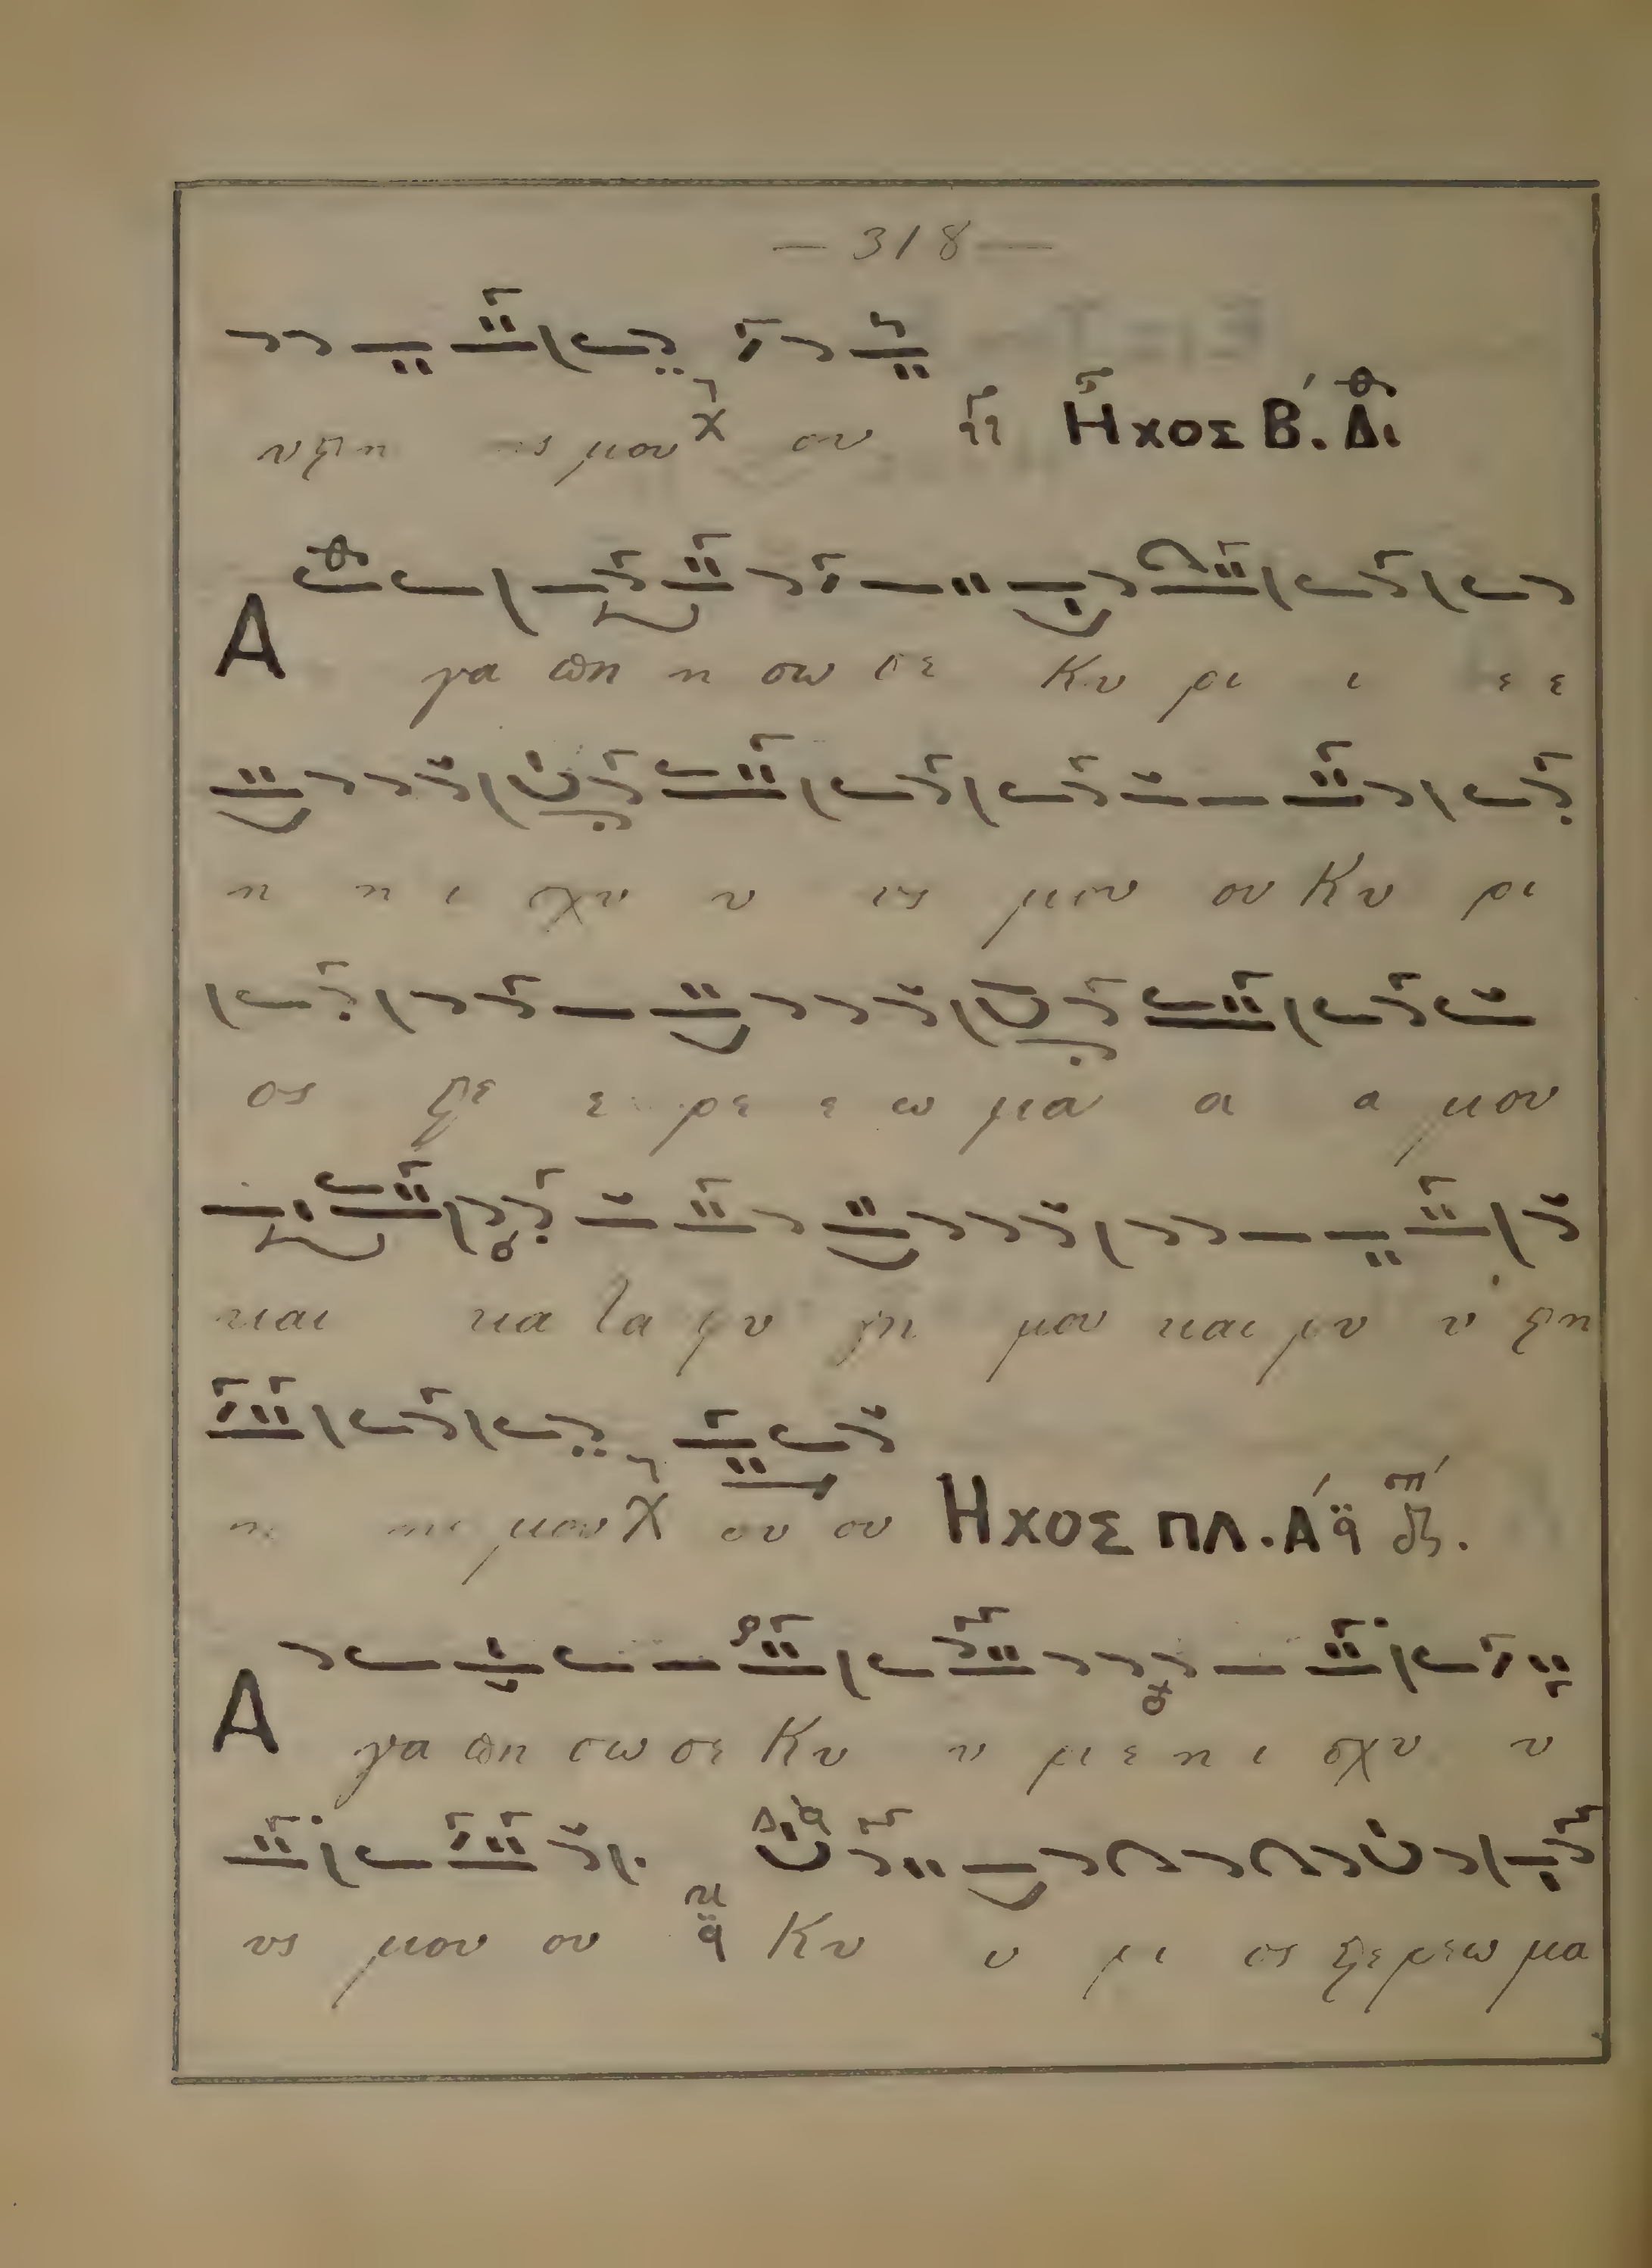 — 318 —
υ στη ης μου χ ου Ηχος Β΄. Δι
Α γα πη η σω σε Κυ ρι ι ε ε
η η ι σχυ υ ις μου ου Κυ ρι
ος στε ε ρε ε ω μα α α μου
και κα τα φυ γη μου και ρυ υ στη
η ης μου χ ου ου Ηχος πλ. Α΄ q
Α γα πη σω σε Κυ υ ρι ε η ι σχυ υ
υς μου ου q Κυ υ ρι ος στε ρε ω μα